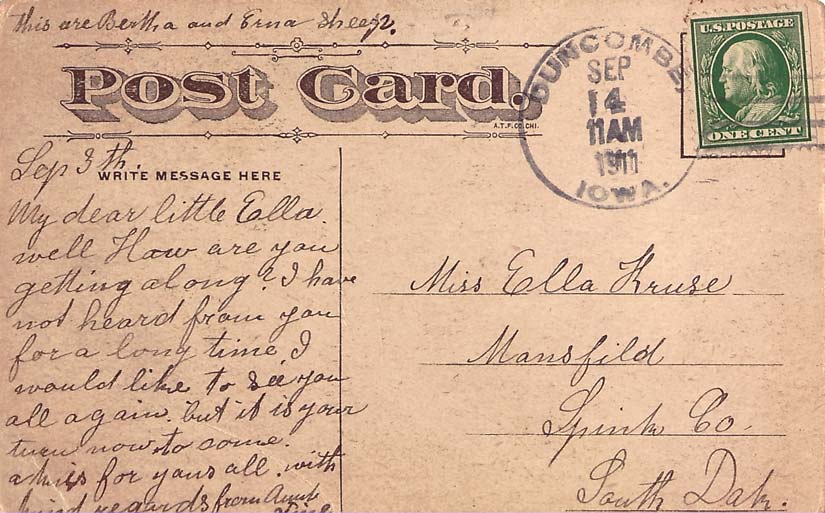 this are Bertha and Erna Sheez.
Post Card.
A.T.F.CO.CHI.
DUNCOMBE,
SEP
14
11 AM
1911
IOWA.
U.S. POSTAGE
ONE CENT
Sep 3th.
WRITE MESSAGE HERE
My dear little Ella.
well How are you
getting along? I have
not heard from you
for a long time, I
would like to see you
all again. but it is your
turn now to come.
a kiss for yous all. with
kind regards from Aunt
Miss Ella Kruse
Mansfild
Spink Co.
South Dak.